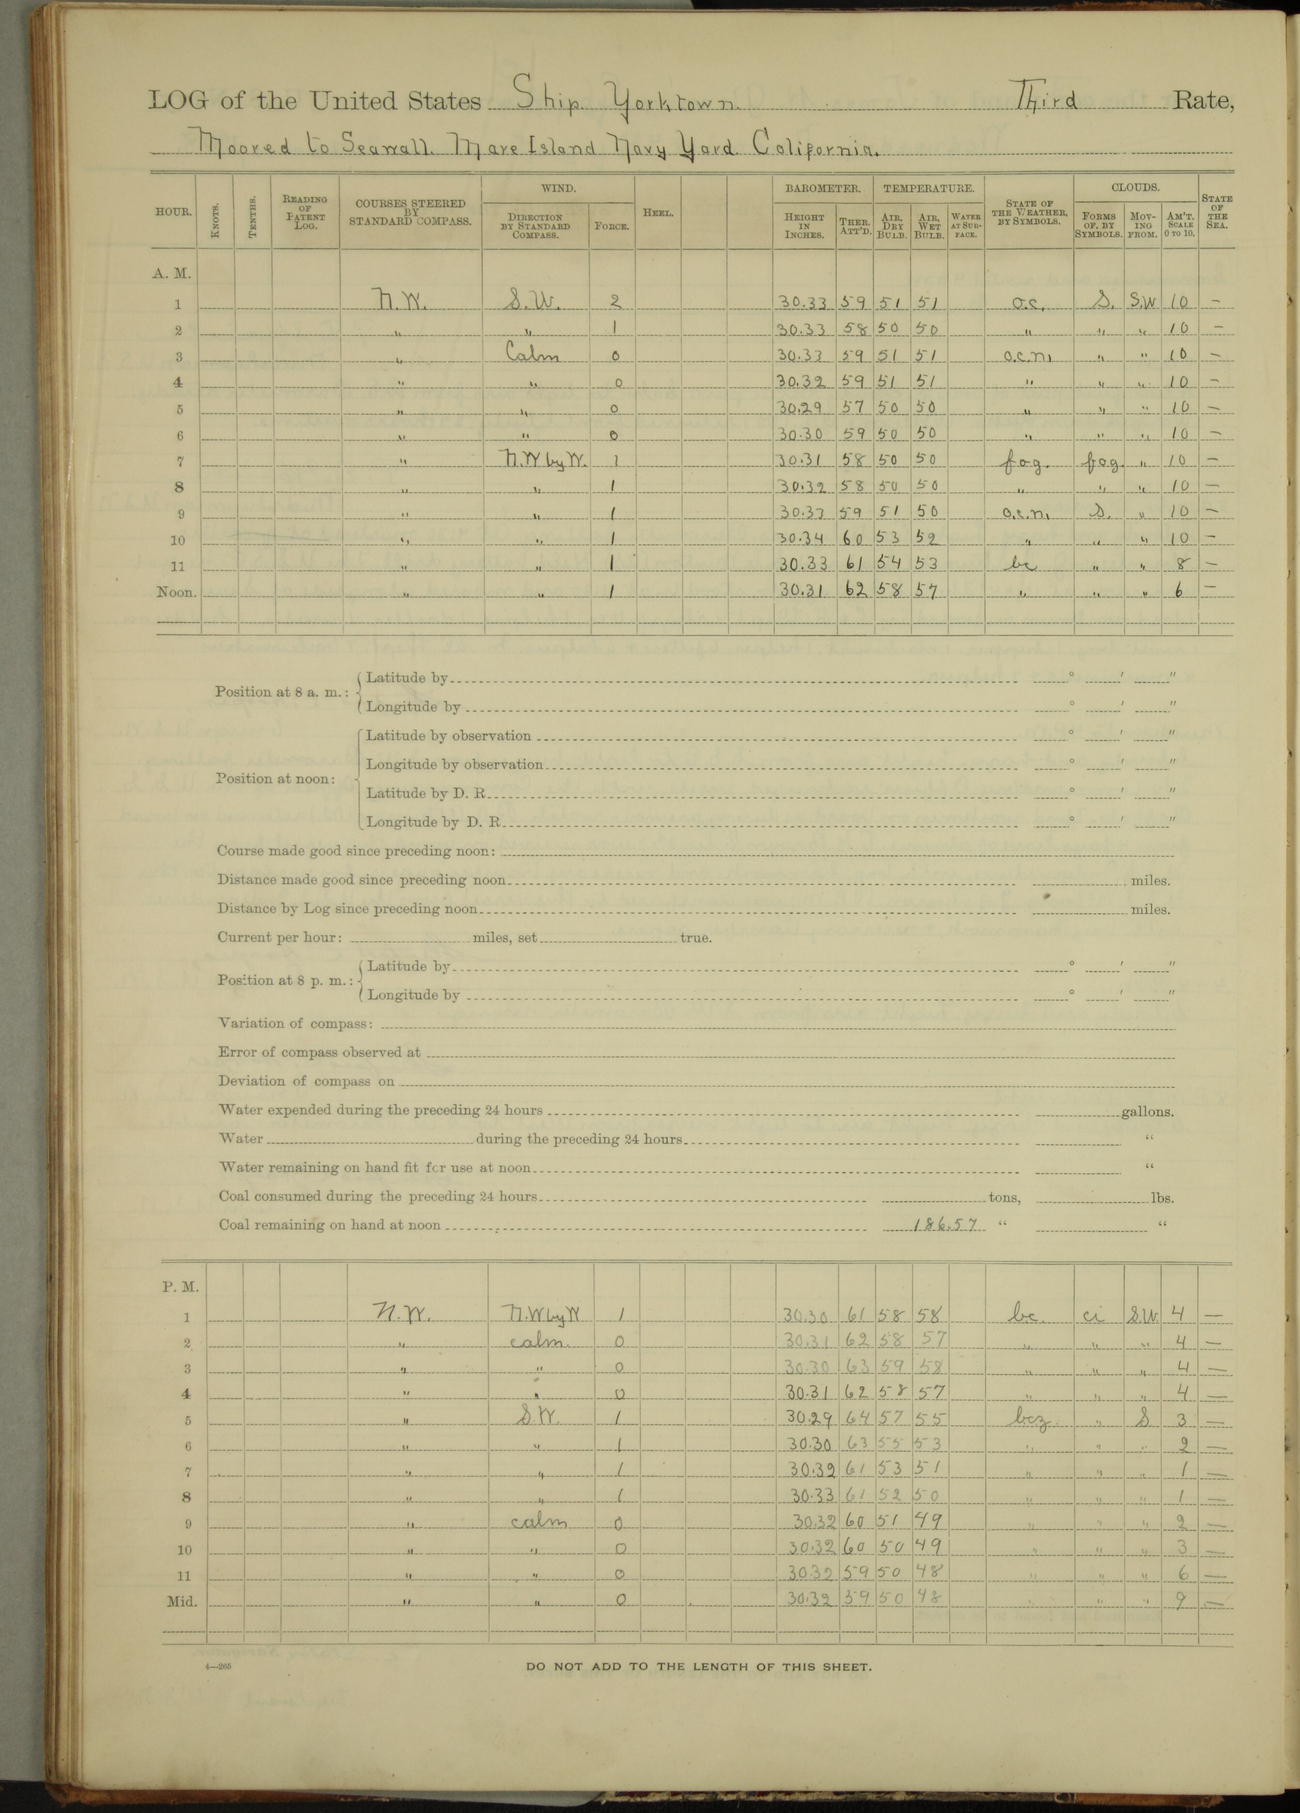 LOG of the United States Ship Yorktown. Third Rate,
Moored to Seawall. Mare Island Navy Yard California.
HOUR. KNOTS. TENTHS. READING OF PATENT LOG. COURSES STEERED BY STANDARD COMPASS. WIND. DIRECTION BY STANDARD COMPASS. FORCE. HEEL. BAROMETER. HEIGHT IN INCHES. THER. ATT'D. TEMPERATURE. AIR, DRY BULB. AIR, WET BULB. WATER AT SURFACE. STATE OF THE WEATHER, BY SYMBOLS. CLOUDS. FORMS OF, BY SYMBOLS. MOVING FROM. AM'T. SCALE 0 TO 10. STATE OF THE SEA.
A. M.
1 N.W. S.W. 2 30.33 59 51 51 o.c. S. S.W 10 —
2 " " 1 30.33 58 50 50 " " " 10 —
3 " Calm 0 30.33 59 51 51 o.c.m, " " 10 —
4 " " 0 30.32 59 51 51 " " " 10 —
5 " " 0 30.29 57 50 50 " " " 10 —
6 " " 0 30.30 59 50 50 " " " 10 —
7 " N.W by W. 1 30.31 58 50 50 fog. fog. " 10 —
8 " " 1 30.32 58 50 50 " " " 10 —
9 " " 1 30.33 59 51 50 o.c.m, S. " 10 —
10 " " 1 30.34 60 53 52 " " " 10 —
11 " " 1 30.33 61 54 53 bc " " 8 —
Noon. " " 1 30.31 62 58 57 " " " 6 —
Position at 8 a. m.: Latitude by ° ' "
Longitude by ° ' "
Position at noon: Latitude by observation ° ' "
Longitude by observation ° ' "
Latitude by D. R ° ' "
Longitude by D. R ° ' "
Course made good since preceding noon:
Distance made good since preceding noon miles.
Distance by Log since preceding noon miles.
Current per hour: miles, set true.
Position at 8 p. m.: Latitude by ° ' "
Longitude by ° ' "
Variation of compass:
Error of compass observed at
Deviation of compass on
Water expended during the preceding 24 hours gallons.
Water during the preceding 24 hours "
Water remaining on hand fit for use at noon "
Coal consumed during the preceding 24 hours tons, lbs.
Coal remaining on hand at noon 186.57 " "
P. M.
1 N.W. N.W by W 1 30.30 61 58 58 bc. ci S.W. 4 —
2 " calm. 0 30.31 62 58 57 " " " 4 —
3 " " 0 30.30 63 59 58 " " " 4 —
4 " " 0 30.31 62 58 57 " " " 4 —
5 " S.W. 1 30.29 64 57 55 bcz. " S 3 —
6 " " 1 30.30 63 55 53 " " " 2 —
7 " " 1 30.32 61 53 51 " " " 1 —
8 " " 1 30.33 61 52 50 " " " 1 —
9 " calm 0 30.32 60 51 49 " " " 2 —
10 " " 0 30.32 60 50 49 " " " 3 —
11 " " 0 30.32 59 50 48 " " " 6 —
Mid. " " 0 30.32 59 50 48 " " " 9 —
4—265 DO NOT ADD TO THE LENGTH OF THIS SHEET.